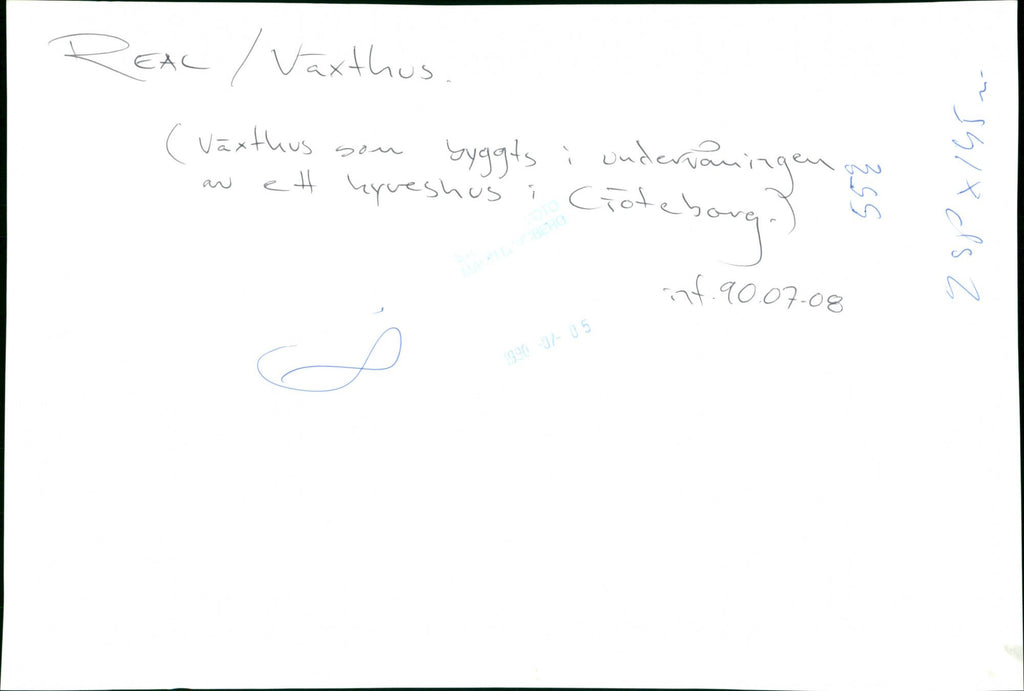 REAL / Växthus.
(Växthus som byggts i undervåningen
av ett hyreshus i Göteborg.)
inf. 90.07-08
552
2 sp x 145 m
FOTO
1990 -07- 05